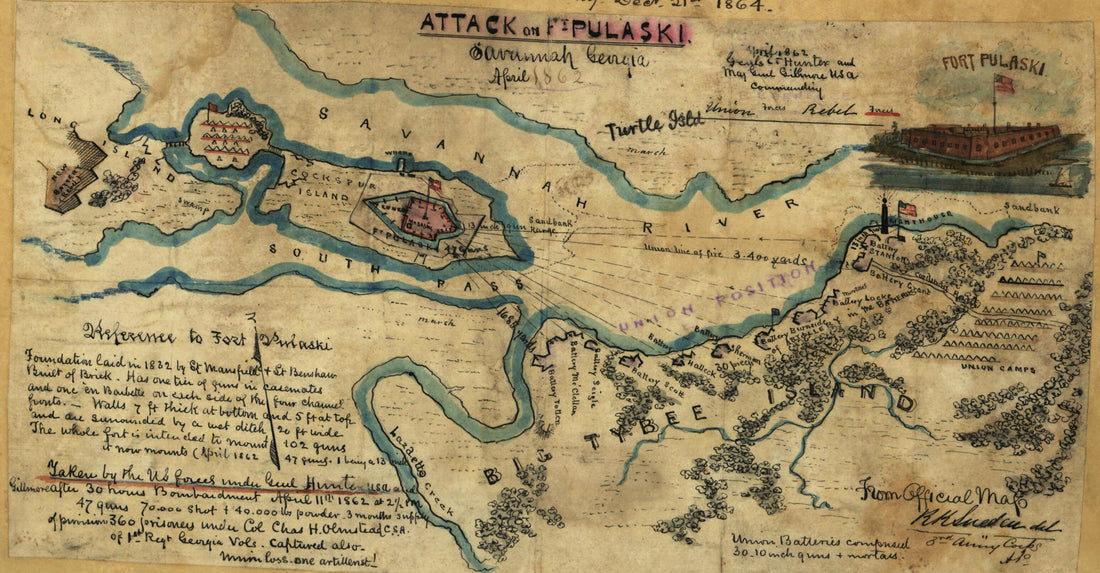 Dec. 21st 1864.
ATTACK on Ft PULASKI.
Savannah Georgia
April 1862
April 1862
Genls Hunter and
Maj Genl Gillmore USA
Commanding
Union Rebel
FORT PULASKI
Turtle Isld
march
LONG
ISLAND
SAVANNAH RIVER
Wharf
COCKSPUR
ISLAND
SWAMP
Ft PULASKI
47 Guns
13 inch gun
Sandbank
Range
Union line of fire 3.400 yards
UNION POSITION
SOUTH PASS
march
LIGHTHOUSE
Sandbank
Battery
STANTON
Battery Grant
Battery Burnside
Sherman
Battery Halleck
Battery Scott
Battery Seigle
Battery McClellan
Battery Totten
UNION CAMPS
TYBEE ISLAND
BIG
Lazaretto Creek
Reference to Fort Pulaski
Foundation laid in 1832 by Lt Mansfield + Lt Benshaw
Built of Brick. Has one tier of guns in casemates
and one en Barbette on each side of the four channel
fronts. Walls 7 ft thick at bottom and 5 ft at top
and are surrounded by a wet ditch 20 ft wide
The whole fort is intended to mount 102 guns
it now mounts (April 1862 47 guns. 1 being a 13 inch
Taken by the US forces under Genl Hunter USA and
Gillmore after 30 hours Bombardment April 11th 1862 at 2½ PM
47 guns 70.000 shot + 40.000 lbs powder. 3 months supply
of provision 360 prisoners under Col Chas H. Olmstead C.S.A.
of 1st Regt Georgia Vols. Captured also.
Union loss. one artillerist!
From Official Map
RK Sneden del
3rd Army Corps
Union Batteries comprised
30. 10 inch guns + mortars.